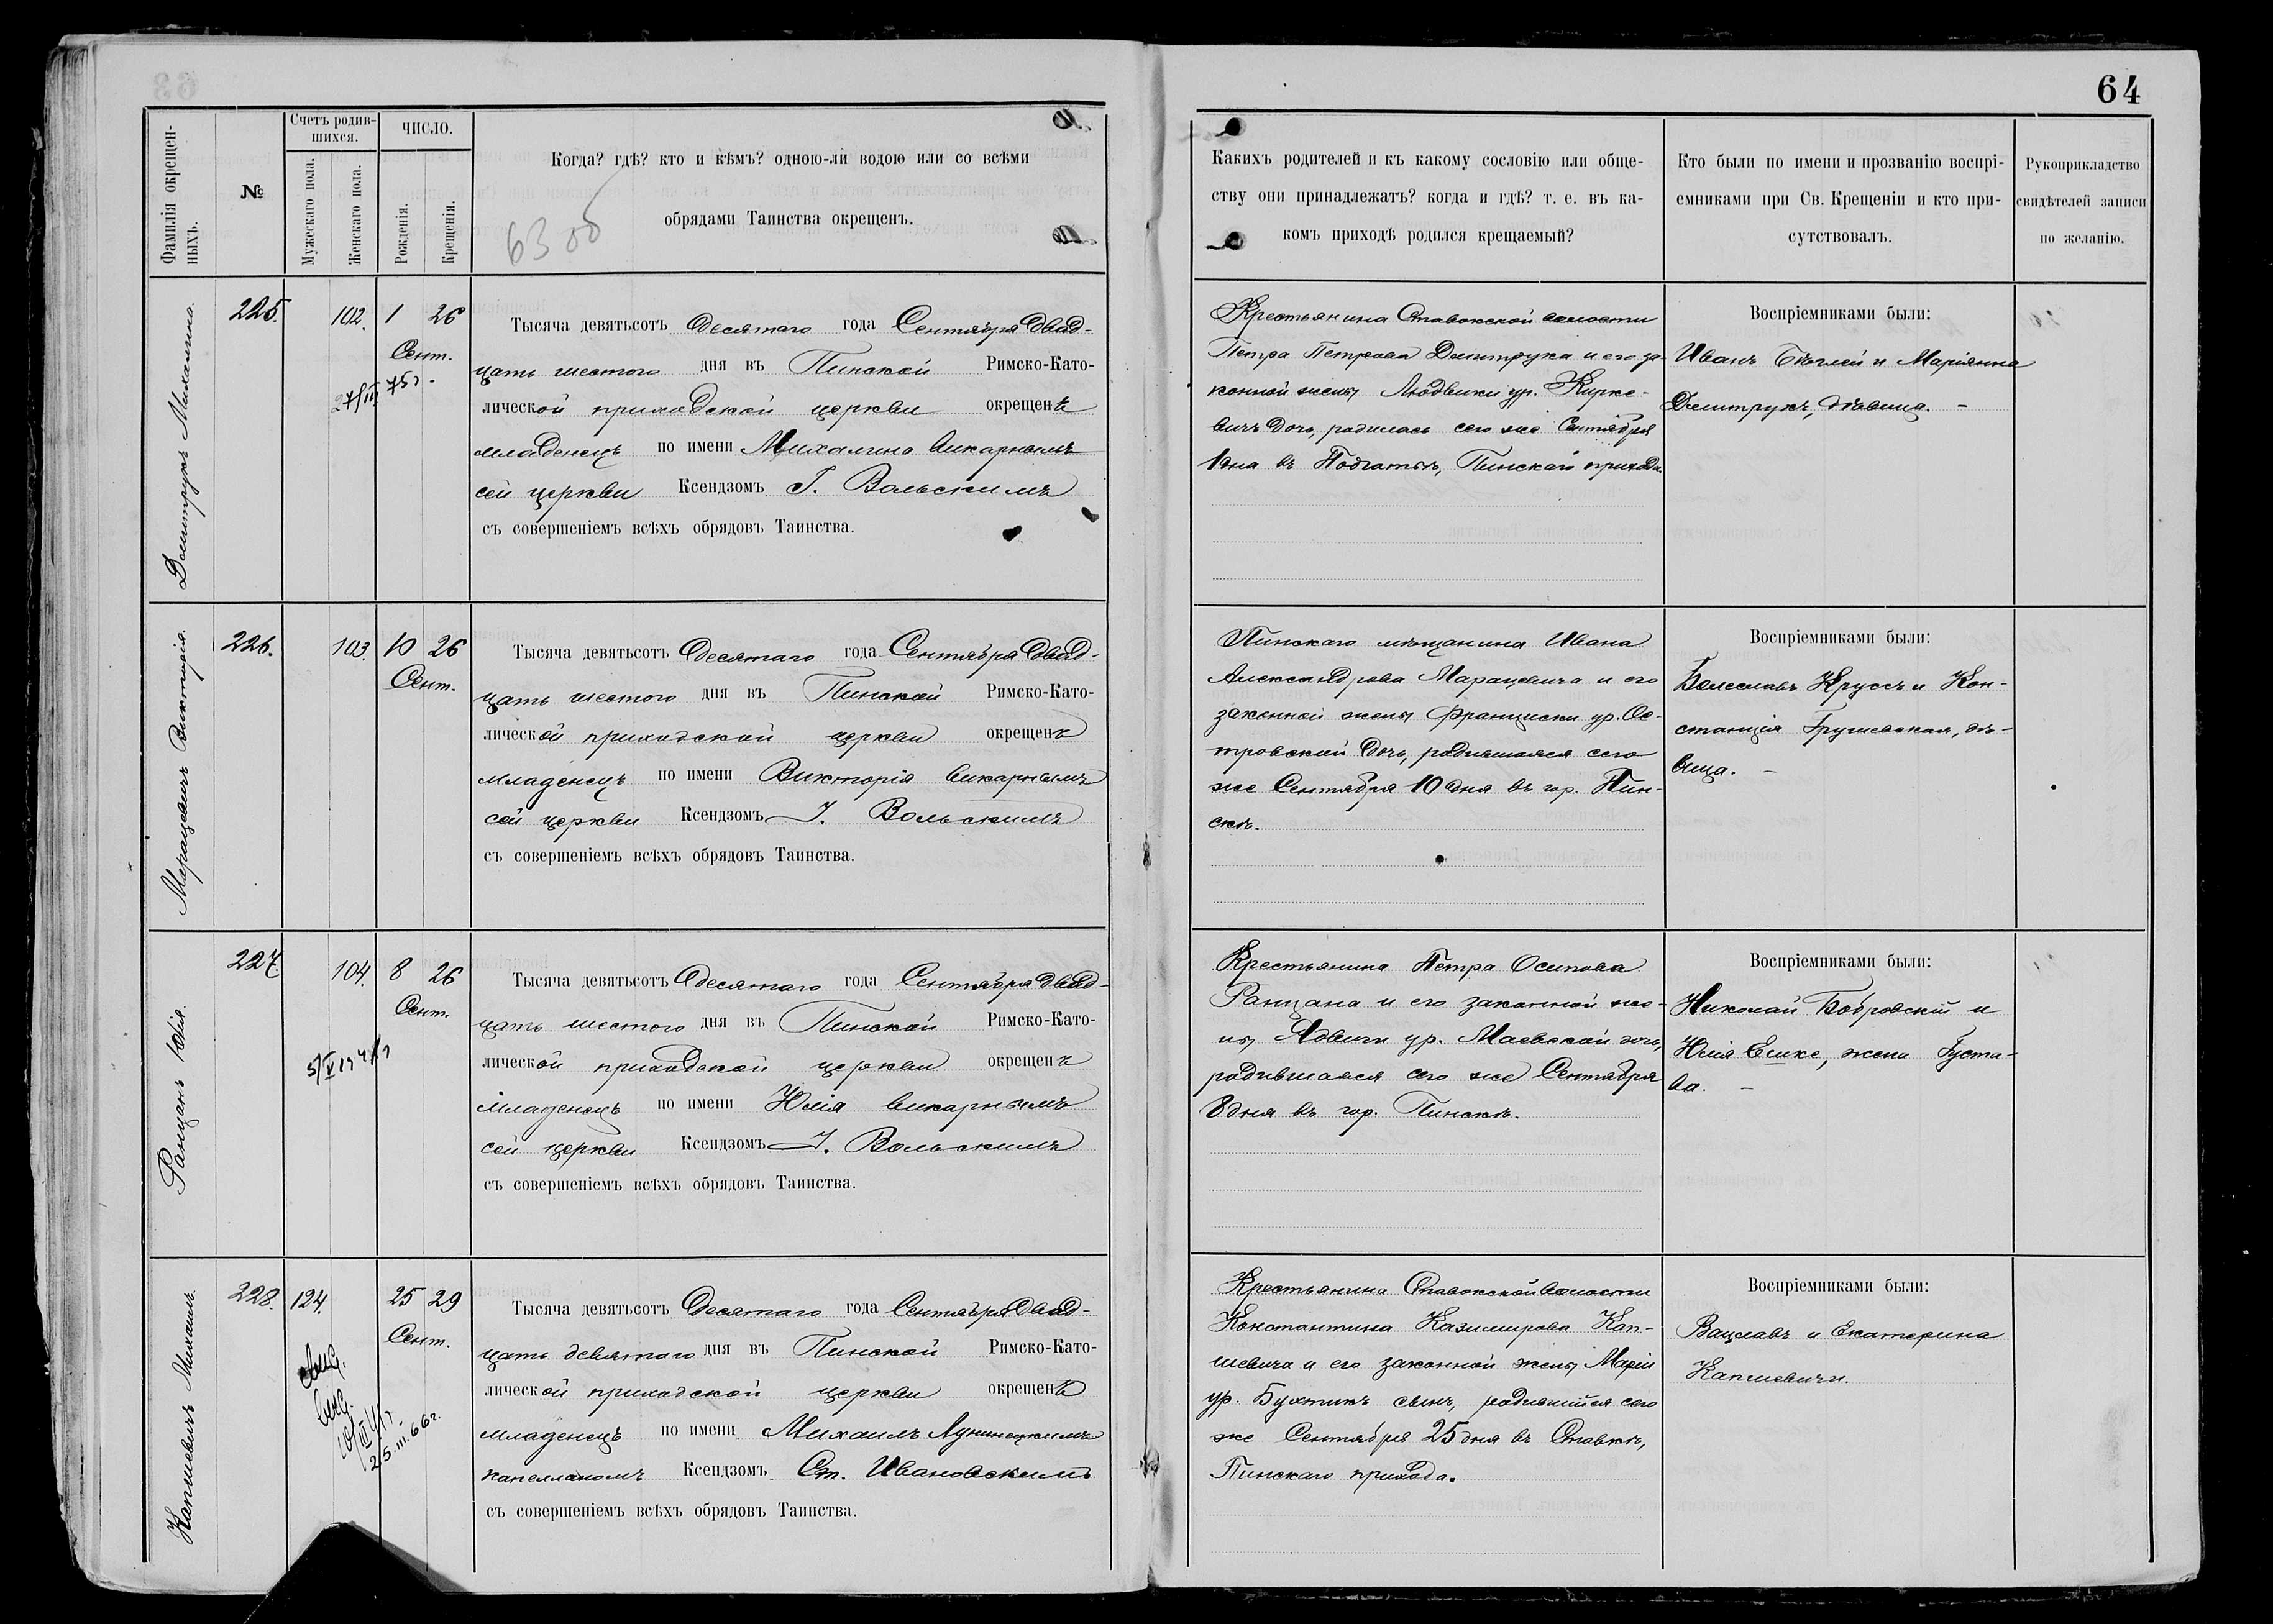 64
Фамилія окрещен-
ныхъ.
№
Счетъ родив-
шихся.
Мужескаго пола.
Женскаго пола.
ЧИСЛО.
Рожденія.
Крещенія.
Когда? гдѣ? кто и кѣмъ? одною-ли водою или со всѣми
обрядами Таинства окрещенъ.
6300
Какихъ родителей и къ какому сословію или обще-
ству они принадлежатъ? когда и гдѣ? т. е. въ ка-
комъ приходѣ родился крещаемый?
Кто были по имени и прозванію воспрі-
емниками при Св. Крещеніи и кто при-
сутствовалъ.
Рукоприкладство
свидѣтелей записи
по желанію.
Дмитрукъ Михалина.
225.
102.
1 26
Сент.
Тысяча девятьсотъ Десятаго года Сентября двад-
цать шестого дня въ Пинской Римско-Като-
лической приходской церкви окрещенъ
младенецъ по имени Михалина викарнымъ
сей церкви Ксендзомъ І. Вольскимъ
съ совершеніемъ всѣхъ обрядовъ Таинства.
Крестьянина Ставокской волости
Петра Петрова Дмитрука и его за-
конной жены Людвики ур. Кирке-
вичъ дочь, родилась сего же Сентября
1 дня въ Пинскаго прихода.
Воспріемниками были:
Иванъ и Маріянна
Дмитрукъ, дѣвица. –
Марацевичъ Викторія.
226.
103.
10 26
Сент.
Тысяча девятьсотъ Десятаго года Сентября двад-
цать шестого дня въ Пинской Римско-Като-
лической приходской церкви окрещенъ
младенецъ по имени Викторія викарнымъ
сей церкви Ксендзомъ І. Вольскимъ
съ совершеніемъ всѣхъ обрядовъ Таинства.
Пинскаго мѣщанина Ивана
Александрова Марацевича и его
законной жены Франциски ур. Ос-
тровской дочь, родившаяся сего
же Сентября 10 дня въ гор. Пин-
скѣ.
Воспріемниками были:
Болеславъ Круссъ и Кон-
станція Грушевская, дѣ-
вица. –
Ранцанъ Юлія.
227.
104.
8 26
Сент.
Тысяча девятьсотъ Десятаго года Сентября двад-
цать шестого дня въ Пинской Римско-Като-
лической приходской церкви окрещенъ
младенецъ по имени Юлія викарнымъ
сей церкви Ксендзомъ І. Вольскимъ
съ совершеніемъ всѣхъ обрядовъ Таинства.
Крестьянина Петра Осипова
Ранцана и его законной же-
ны Ядвиги ур. Маевской дочь,
родившаяся сего же Сентября
8 дня въ гор. Пинскѣ.
Воспріемниками были:
Николай Бобровскій и
Юлія Ешке, жена Густа-
ва. –
Капшевичъ Михаилъ.
228.
124.
25 29
Сент.
25.III.66г.
Тысяча девятьсотъ Десятаго года Сентября двад-
цать девятаго дня въ Пинской Римско-Като-
лической приходской церкви окрещенъ
младенецъ по имени Михаилъ Лунинецкимъ
капелланомъ Ксендзомъ Ст. Ивановскимъ
съ совершеніемъ всѣхъ обрядовъ Таинства.
Крестьянина Ставокской волости
Константина Казимирова Кап-
шевича и его законной жены Маріи
ур. Бухтикъ сынъ, родившійся сего
же Сентября 25 дня въ Ставкѣ,
Пинскаго прихода.
Воспріемниками были:
Вацлавъ и Екатерина
Капшевичи.